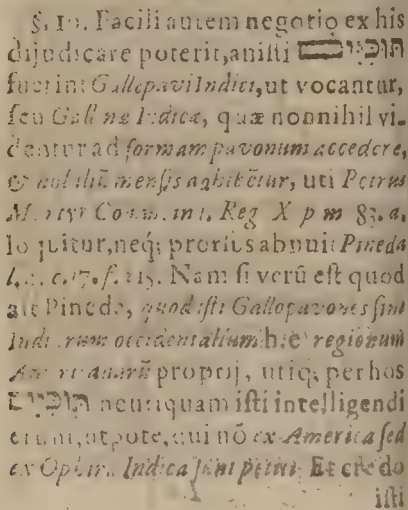 §. 10. Facili autem negotio ex his
dijudicare poterit, an isti תוכיים
fuerint Gallopavi Indici, ut vocantur,
seu Gallinæ Indicæ, quæ nonnihil vi-
dentur ad formam pavonum accedere,
& nobiliū mensis adhibētur, uti Petrus
Martyr Comm. in 1. Reg X p m 83. a.
loquitur, neq; prorsus abnuit Pineda
l. c. 17. f. 215. Nam si verū est quod
ait Pineda, quod isti Gallopavones sint
Indiarum occidentalium hïc regionum
Americanarū proprij, utiq; per hos
תוכיים neutiquam isti intelligendi
erunt, utpote, qui nō ex America sed
ex Ophira Indica sint petiti. Et credo
isti